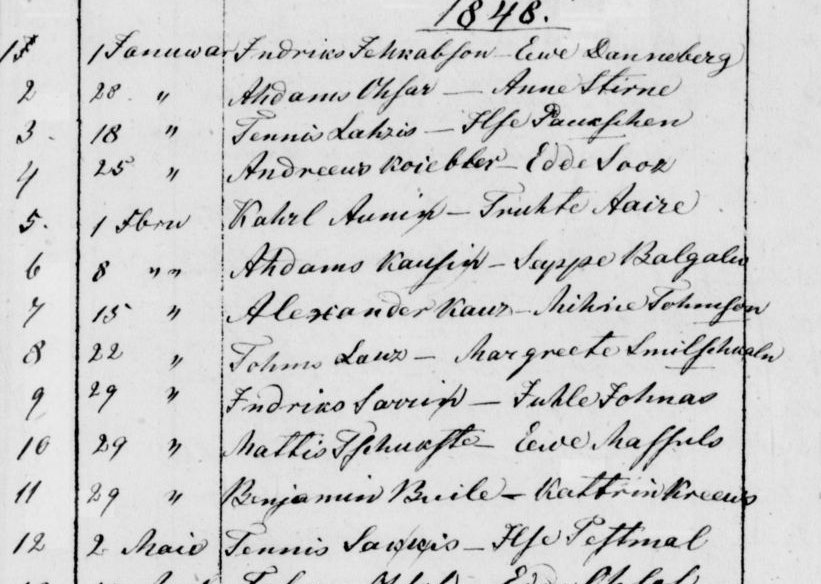 1848.
1 1 Januwar Indriks Jehkabson – Eewe Danneberg
2 28 " Ahdams Ohsar – Anne Stirne
3. 18 " Tennis Lahzis – Ilse Paukschen
4 25 " Andreews Koiebber – Edde Sook
5. 1 Fbru Kahrl Aunin – Truhte Aaire
6 8 " " Ahdams Kausin – Seppe Balgalw
7 15 " Alexander Kauz – Mihrie Johnson
8 22 " Tohms Lauz – Margreete Smilschkaln
9 29 " Indriks Sarrin – Juhle Johnas
10 29 " Mattis Tschukste – Eewe Massuls
11 29 " Benjamin Buile – Kattrin Kreews
12 2 Maie Tennis Sakkis – Ilse Testmal